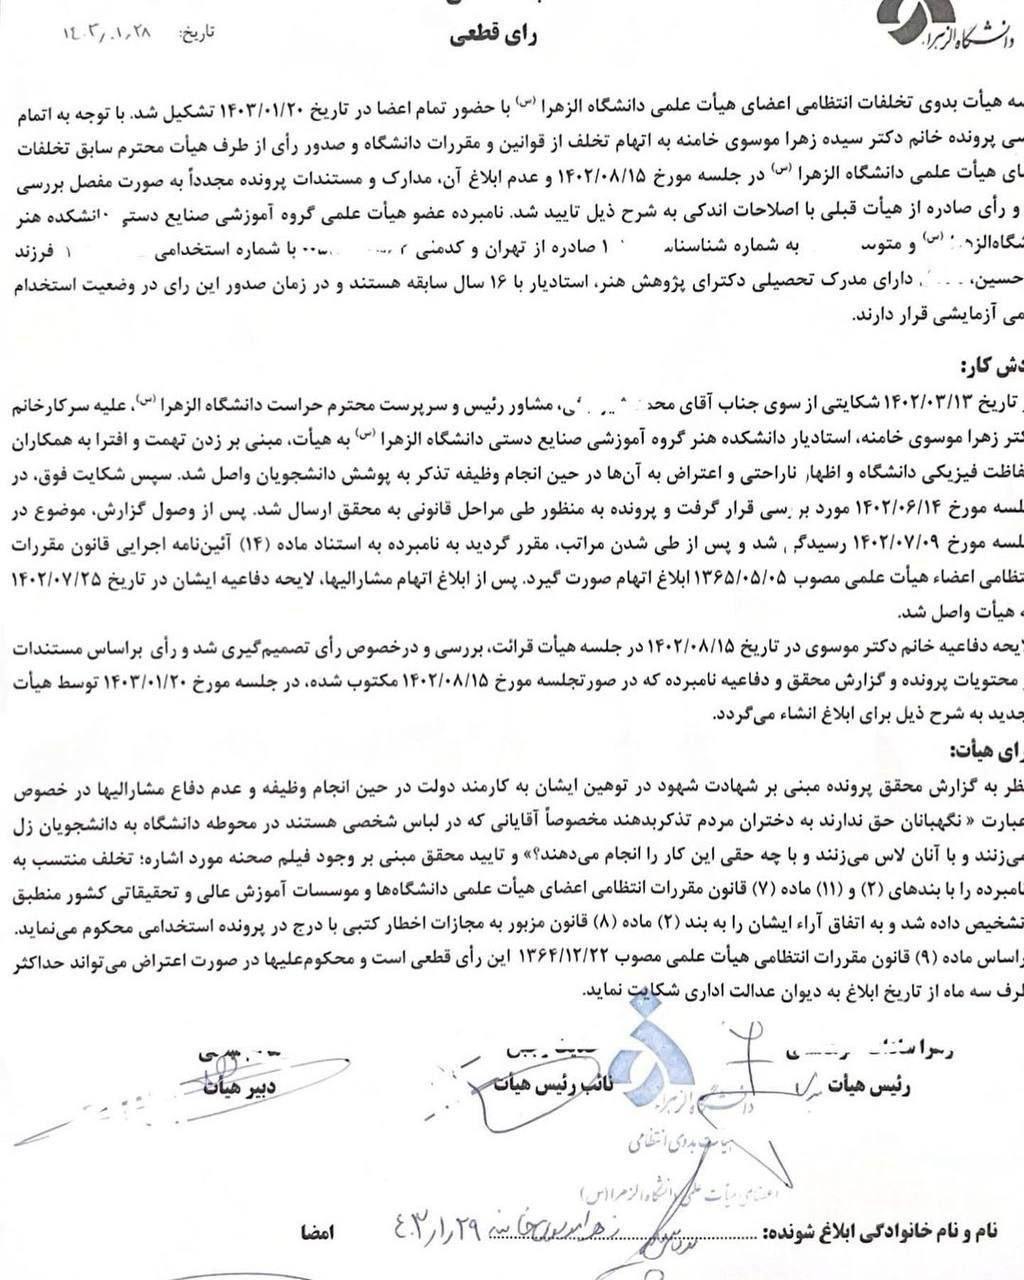 رای قطعی
تاریخ: ۱۴۰۳/۰۱/۲۸
دانشگاه الزهرا
هیأت بدوی تخلفات انتظامی اعضای هیأت علمی دانشگاه الزهرا (س) با حضور تمام اعضا در تاریخ ۱۴۰۳/۰۱/۲۰ تشکیل شد. با توجه به اتمام
پرونده خانم دکتر سیده زهرا موسوی خامنه به اتهام تخلف از قوانین و مقررات دانشگاه و صدور رأی از طرف هیأت محترم سابق تخلفات
هیأت علمی دانشگاه الزهرا (س) در جلسه مورخ ۱۴۰۲/۰۸/۱۵ و عدم ابلاغ آن، مدارک و مستندات پرونده مجدداً به صورت مفصل بررسی
و رأی صادره از هیأت قبلی با اصلاحات اندکی به شرح ذیل تایید شد. نامبرده عضو هیأت علمی گروه آموزشی صنایع دستی دانشکده هنر
(س) و به شماره صادره از تهران و کدملی با شماره استخدامی فرزند
حسین، دارای مدرک تحصیلی دکترای پژوهش هنر، استادیار با ۱۶ سال سابقه هستند و در زمان صدور این رای در وضعیت استخدام
آزمایشی قرار دارند.
کار:
تاریخ ۱۴۰۲/۰۳/۱۳ شکایتی از سوی جناب آقای مشاور رئیس و سرپرست محترم حراست دانشگاه الزهرا (س)، علیه سرکارخانم
زهرا موسوی خامنه، استادیار دانشکده هنر گروه آموزشی صنایع دستی دانشگاه الزهرا (س) به هیأت، مبنی بر زدن تهمت و افترا به همکاران
فیزیکی دانشگاه و اظهار ناراحتی و اعتراض به آن‌ها در حین انجام وظیفه تذکر به پوشش دانشجویان واصل شد. سپس شکایت فوق، در
مورخ ۱۴۰۲/۰۶/۱۴ مورد بررسی قرار گرفت و پرونده به منظور طی مراحل قانونی به محقق ارسال شد. پس از وصول گزارش، موضوع در
مورخ ۱۴۰۲/۰۷/۰۹ رسیدگی شد و پس از طی شدن مراتب، مقرر گردید به نامبرده به استناد ماده (۱۴) آئین‌نامه اجرایی قانون مقررات
اعضاء هیأت علمی مصوب ۱۳۶۵/۰۵/۰۵ ابلاغ اتهام صورت گیرد. پس از ابلاغ اتهام مشارالیها، لایحه دفاعیه ایشان در تاریخ ۱۴۰۲/۰۷/۲۵
هیأت واصل شد.
لایحه دفاعیه خانم دکتر موسوی در تاریخ ۱۴۰۲/۰۸/۱۵ در جلسه هیأت قرائت، بررسی و درخصوص رأی تصمیم‌گیری شد و رأی براساس مستندات
محتویات پرونده و گزارش محقق و دفاعیه نامبرده که در صورتجلسه مورخ ۱۴۰۲/۰۸/۱۵ مکتوب شده، در جلسه مورخ ۱۴۰۳/۰۱/۲۰ توسط هیأت
جدید به شرح ذیل برای ابلاغ انشاء می‌گردد.
رای هیأت:
نظر به گزارش محقق پرونده مبنی بر شهادت شهود در توهین ایشان به کارمند دولت در حین انجام وظیفه و عدم دفاع مشارالیها در خصوص
عبارت « نگهبانان حق ندارند به دختران مردم تذکربدهند مخصوصاً آقایانی که در لباس شخصی هستند در محوطه دانشگاه به دانشجویان زل
می‌زنند و با آنان لاس می‌زنند و با چه حقی این کار را انجام می‌دهند؟» و تایید محقق مبنی بر وجود فیلم صحنه مورد اشاره؛ تخلف منتسب به
نامبرده را با بندهای (۲) و (۱۱) ماده (۷) قانون مقررات انتظامی اعضای هیأت علمی دانشگاه‌ها و موسسات آموزش عالی و تحقیقاتی کشور منطبق
تشخیص داده شد و به اتفاق آراء ایشان را به بند (۲) ماده (۸) قانون مزبور به مجازات اخطار کتبی با درج در پرونده استخدامی محکوم می‌نماید.
براساس ماده (۹) قانون مقررات انتظامی هیأت علمی مصوب ۱۳۶۴/۱۲/۲۲ این رأی قطعی است و محکوم‌علیها در صورت اعتراض می‌تواند حداکثر
ظرف سه ماه از تاریخ ابلاغ به دیوان عدالت اداری شکایت نماید.
رئیس هیأت
نائب رئیس هیأت
دبیر هیأت
دانشگاه الزهرا
هیات بدوی انتظامی
اعضای هیات علمی دانشگاه الزهرا(س)
نام و نام خانوادگی ابلاغ شونده: زهرا موسوی خامنه ۴۰۳/۱/۲۹ امضا